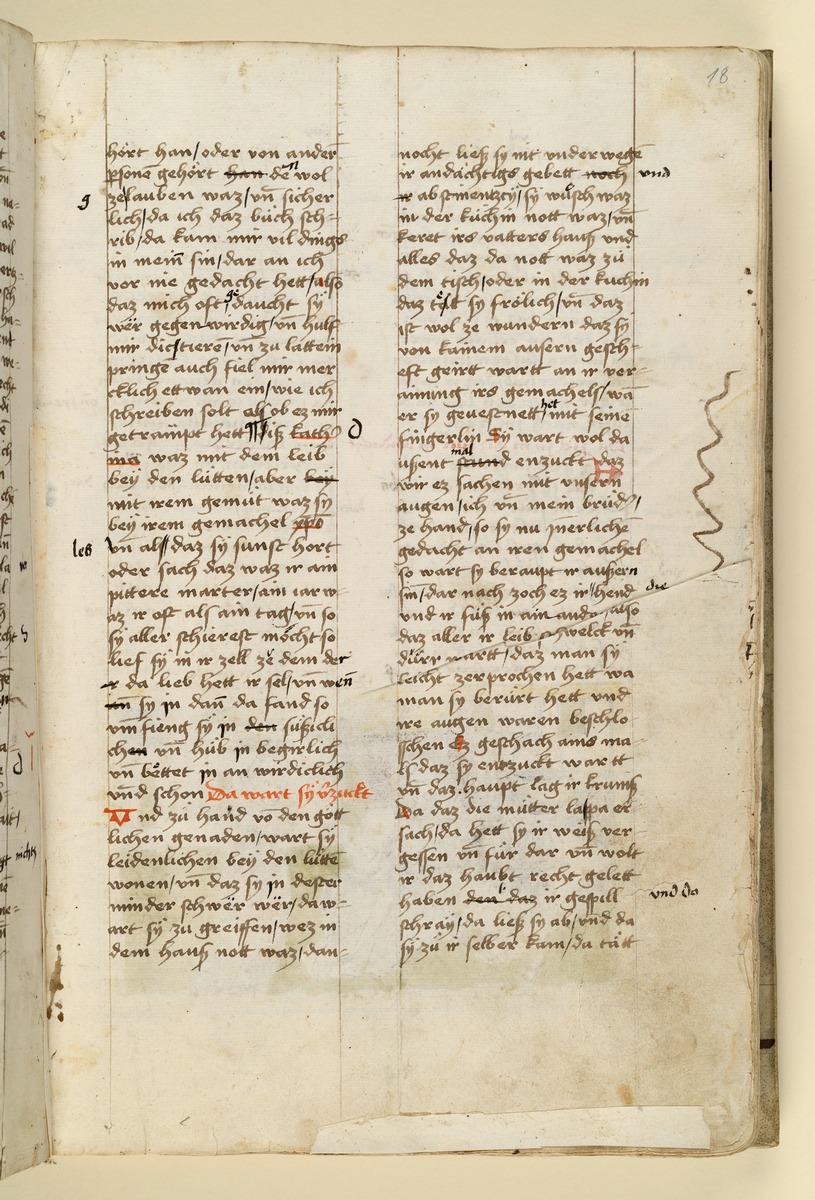 18
hort han / oder von ander̄
ꝑsone gehört han de͞n wol
ze glauben waz / vn̄ sicher
lich / da ich daz bůch sch=
rib / da kam mir vil dings
in mein̄ sin / dar an ich
vor nie gedacht hett / also
daz mich oft gedaucht sy
wër gegen wirdig / vn̄ hulf
mir dictieren / vn̄ zu lattein
pringē auch fiel mir mer
cklich ettwan ein / wie ich
schreiben solt als ob ez mir
getrampt hett kath
ina waz mit dem leib
bey den lütten / aber bey
mit irem gemüt waz sy
bey irem gemachel xpo
vn̄ als daz sy sunst hort
oder sach daz waz ir ain
pittere marter / ain iar w=
az ir oft als ain tag / vn̄ so
sy aller schierest möcht so
lief sy in ir zell ze dem der
ir da lieb hett ir sel / vn̄ wen̄
sy in dan̄ da fand so
vm̄ fieng sy in den süßicli
chen vn̄ hůb in begirlich
vn̄ bettet in an wirdiclich
vn̄d schon Da wart sy v̄zuckt
Vnd zů hand vō den gött
lichen genaden / wart sy
leidenlichen bey den lüttē
wonen / vn̄ daz sy in dester
minder schwër wër / da w=
art sy zu greiffen / wez in
dem hauß nott waz / dan=
nocht ließ sy nit vnder wegē
ir andächtigs gebett noch vnd
ir abstinentzcy / sy wůsch waz
in der kuchin nott waz / vn̄
keret irs vatters hauß vnd
alles daz da nott waz zů
dem tisch / oder in der kuchin
daz tett sy frölich / vn̄ daz
ist wol ze wundern daz sy
von kainem ausern gesch=
eft geirrt wartt an ir ver=
ainung irs gemachels / wā
er sy geuestnett het mit seinē
fingerlin Sy wart wol da
ußent mal enzuckt daz
wir ez sachen mit vnsern
augen / ich vn̄ mein brüd /
ze hand / so sy nu inerlichē
gedacht an iren gemachel
so wart sy beraupt ir außern
sin / dar nach zoch ez ir hend die
vnd ir füß in ain and also
daz aller ir leib welck vn̄
dürr wartt / daz man sy
leicht zerprochen hett wa
man sy berürt hett vnd
ire augen waren beschlo
sschen Ez geschach ains ma
ls daz sy entzuckt wartt
vn̄ daz haupt lag ir krumß
Da daz die mütter lappa er
sach / da hett sy ir weiß ver=
gessen vn̄ für dar vn̄ wolt
ir daz haubt recht gelett
haben den daz ir gespill vnd da
schray / da ließ sy ab / vnd da
sy zů ir selber kam / da tätt